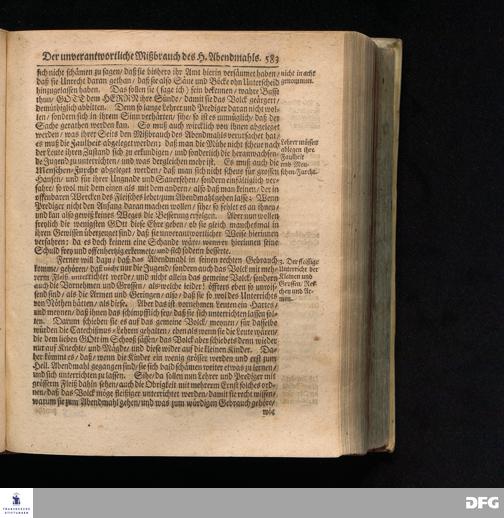 Der unverantwortliche Mißbrauch des H. Abendmahls. 583
sich nicht schämen zu sagen/ daß sie bishero ihr Amt hierin versäumet haben/
daß sie Unrecht daran gethan/ daß sie also Säue und Böcke ohn Unterscheid
hinzugelassen haben. Das sollen sie (sage ich) fein bekennen/ wahre Busse
thun/ GOTT dem HERRN ihr Sünde/ damit sie das Volck geärgert/
demüthiglich abbitten. Denn so lange Lehrer und Prediger daran nicht wol-
len/ sondern sich in ihrem Sinn verhärten/ sihe/ so ist es unmüglich/ daß der
Sache gerathen werden kan. So muß auch wircklich von ihnen abgeleget
werden/ was ihrer Seits den Mißbrauch des Abendmahls verursachet hat/
es muß die Faulheit abgeleget werden; daß man die Mühe nicht scheue nach
der Leute ihren Zustand sich zu erkundigen/ und sonderlich die heranwachsen-
de Jugend zu unterrichten/ und was dergleichen mehr ist. Es muß auch die
Menschen-Furcht abgeleget werden/ daß man sich nicht scheue für grossen
Hansen/ und für ihrer Ungnade und Sauersehen/ sondern einfältiglich ver-
fahre/ so wol mit dem einen als mit dem andern/ also daß man keinen/ der in
offenbaren Wercken des Fleisches lebet/ zum Abendmahl gehen lasse. Wenn
Prediger nicht den Anfang daran machen wollen/ sihe/ so fehlet es an ihnen/
und kan also gewiß keines Weges die Besserung erfolgen. Aber nun wollen
freylich die wenigsten GOtt diese Ehre geben/ ob sie gleich mannesmal in
ihren Gewissen überzeuget sind/ daß sie unverantwortlicher Weise hierinnen
verfahren; da es doch keinem eine Schande wäre/ wenn er hierinnen seine
Schuld frey und offenhertzig erkennete/ und sich sodann besserte.
Ferner will dazu/ daß das Abendmahl in seinen rechten Gebrauch
komme/ gehören/ daß nicht nur die Jugend/ sondern auch das Volck mit meh-
rerm Fleiß unterrichtet werde/ und nicht allein das gemeine Volck/ sondern
auch die Vornehmen und Grossen/ als welche leider! öffters eben so unwis-
send sind/ als die Armen und Geringen/ also/ daß sie so wol des Unterrichts
von Nöthen hätten/ als diese. Aber das ist vornehmen Leuten ein Hartes/
und meynen/ daß ihnen das schimpfflich sey/ daß sie sich unterrichten lassen sol-
ten. Darum schieben sie es auf das gemeine Volck/ meynen/ für dasselbe
würden die Catechismus-Lehren gehalten/ eben als wenn sie die Leute wären/
die dem lieben GOtt im Schooß sässen/ das Volck aber schiebets denn wieder
nur auf Knechte/ und Mägde/ und diese wider auf die kleinen Kinder. Da-
her kömmt es/ daß/ wenn die Kinder ein wenig grösser werden und erst zum
Heil. Abendmahl gegangen sind/ sie sich bald schämen weiter etwas zu lernen/
und sich unterrichten zu lassen. Sihe/ da sollen nun Lehrer und Prediger mit
grösserm Fleiß dahin sehen/ auch die Obrigkeit mit mehrerm Ernst solches ord-
nen/ daß das Volck möge fleißiger unterrichtet werden/ damit sie recht wissen/
warum sie zum Abendmahl gehen/ und was zum würdigen Gebrauch gehöre/
wie
nicht in acht
genommen.
Lehrer müssen
ablegen ihre
Faulheit
und Men-
schen-Furcht.
3. Der fleißige
Unterricht der
Kleinen und
Grossen/ Rei-
chen und Ar-
men.
FRANCKESCHE
STIFTUNGEN
DFG